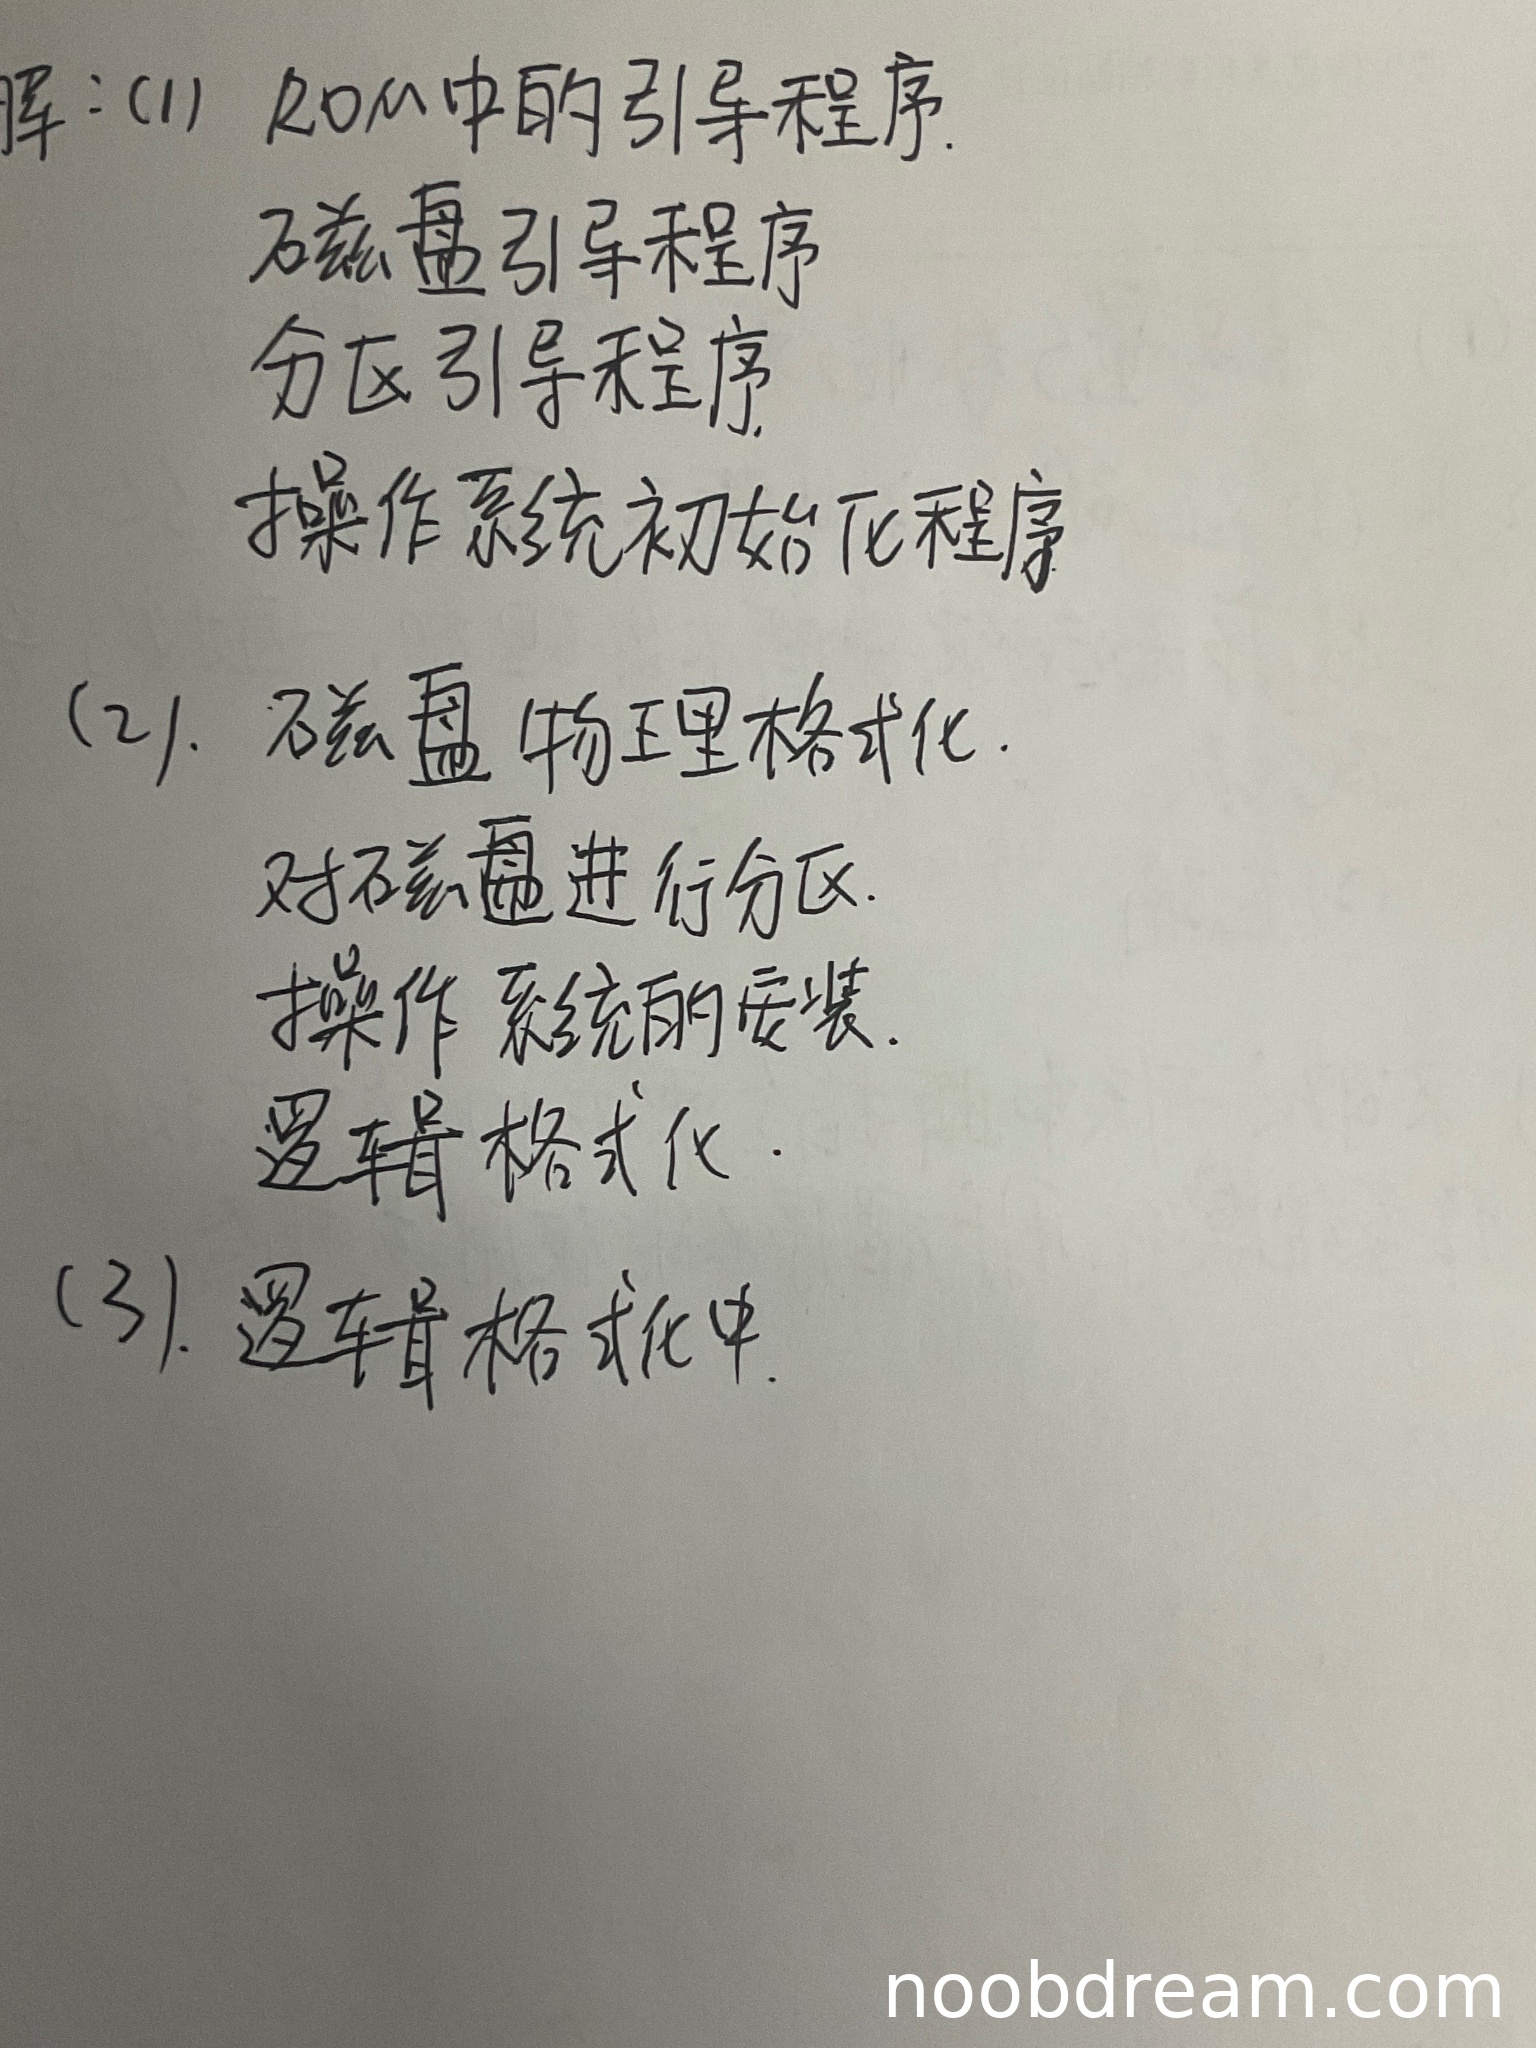 解:(1) ROM中的引导程序.
磁盘引导程序
分区引导程序.
操作系统初始化程序
(2). 磁盘物理格式化.
对磁盘进行分区.
操作系统的安装.
逻辑格式化.
(3). 逻辑格式化中.
noobdream.com